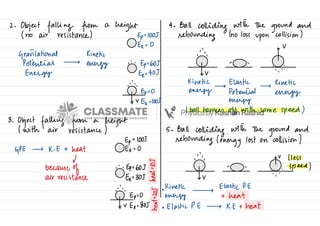 2. Object falling from a height
(no air resistance)
Ep=100J
Ek=0
Gravitational
Potential
Energy
→ Kinetic
energy
Ep=60J
Ek=40J
Ep=0
V Ek=100J
3. Object falling from a height
(with air resistance)
Ep=100J
Ek=0
GPE → K.E + heat
because of
air resistance
Ep=60J
Ek=30J
heat=10J
Ep=0
V Ek=80J
heat=20J
4. Ball colliding with the ground and
rebounding (no loss upon collision)
V
V
Kinetic
energy
→ Elastic
Potential
energy
→ Kinetic
energy
(ball bounces off with same speed)
CLASSMATE
Physics by Kashan Rashid
5. Ball colliding with the ground and
rebounding (energy lost on collision)
V
V (less
speed)
• Kinetic
energy
→ Elastic P.E
+ heat
• Elastic P.E → KE + heat